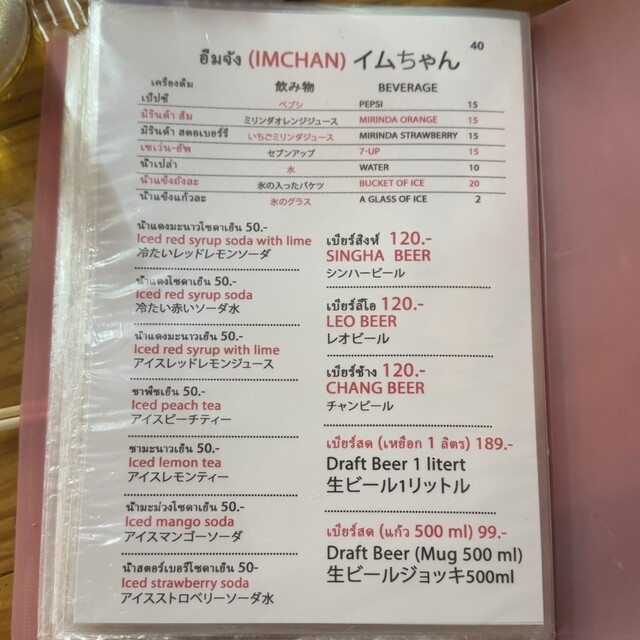 40
อิมจัง (IMCHAN) イムちゃん
เครื่องดื่ม 飲み物 BEVERAGE
เป๊ปซี่ ペプシ PEPSI 15
มิรินด้า ส้ม ミリンダオレンジジュース MIRINDA ORANGE 15
มิรินด้า สตอเบอร์รี่ いちごミリンダジュース MIRINDA STRAWBERRY 15
เซเว่น-อัพ セブンアップ 7-UP 15
น้ำเปล่า 水 WATER 10
น้ำแข็งถังละ 氷の入ったバケツ BUCKET OF ICE 20
น้ำแข็งแก้วละ 氷のグラス A GLASS OF ICE 2
น้ำแดงมะนาวโซดาเย็น 50.-
Iced red syrup soda with lime
冷たいレッドレモンソーダ
น้ำแดงโซดาเย็น 50.-
Iced red syrup soda
冷たい赤いソーダ水
น้ำแดงมะนาวเย็น 50.-
Iced red syrup with lime
アイスレッドレモンジュース
ชาพีชเย็น 50.-
Iced peach tea
アイスピーチティー
ชามะนาวเย็น 50.-
Iced lemon tea
アイスレモンティー
น้ำมะม่วงโซดาเย็น 50.-
Iced mango soda
アイスマンゴーソーダ
น้ำสตอร์เบอรี่โซดาเย็น 50-
Iced strawberry soda
アイスストロベリーソーダ水
เบียร์สิงห์ 120.-
SINGHA BEER
シンハービール
เบียร์ลีโอ 120.-
LEO BEER
レオビール
เบียร์ช้าง 120.-
CHANG BEER
チャンビール
เบียร์สด (เหยือก 1 ลิตร) 189.-
Draft Beer 1 litert
生ビール1リットル
เบียร์สด (แก้ว 500 ml) 99.-
Draft Beer (Mug 500 ml)
生ビールジョッキ500ml